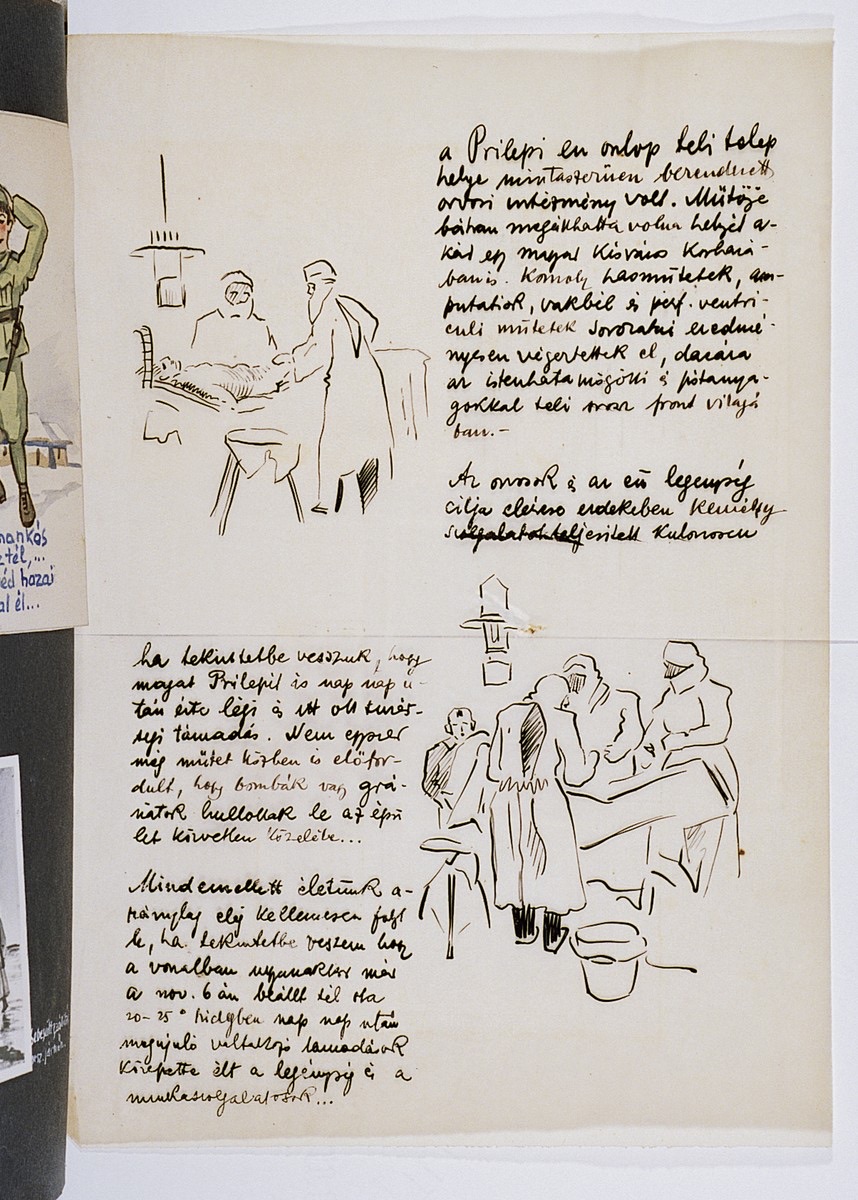 a Prilepi eü onlop teli telep
helye mintaszerüen berendezett
orvosi intézmény volt. Mütője
bátran megállhatta volna helyét a-
kár egy magyar Kisváros Korhazá-
ban is. Komoly hasmütetek, am-
putatiok, vakbél és perf. ventri-
culi mütetek sorozatai eredmé-
nyesen végeztettek el, dacára
az istenhátamögötti s pótanya-
gokkal teli orosz front világá
ban.-
Az orvosok és az eü legenység
célja elérése erdekeben Kemény
szolgalatot teljesitett Kulonosen
ha tekintetbe vesszuk, hogy
magat Prilepit is nap nap u-
tán érte légi és itt ott tüzér-
segi támadás. Nem egyszer
még mütet közben is előfor-
dult, hogy bombák vagy grá-
nátok hullottak le az épü
let közvetlen Közelébe...
Mindemellett életünk a-
ránylag elég Kellemesen folyt
le, ha tekintetbe veszem hogy
a vonalban ugyanakkor már
a nov. 6 án beállt tél ota
20-25° hidegben nap nap után
megujuló váltakozó tamadások
Közepette élt a legénység és a
munkaszolgalatosok...
mankós
ztél,...
éd hazai
al él...